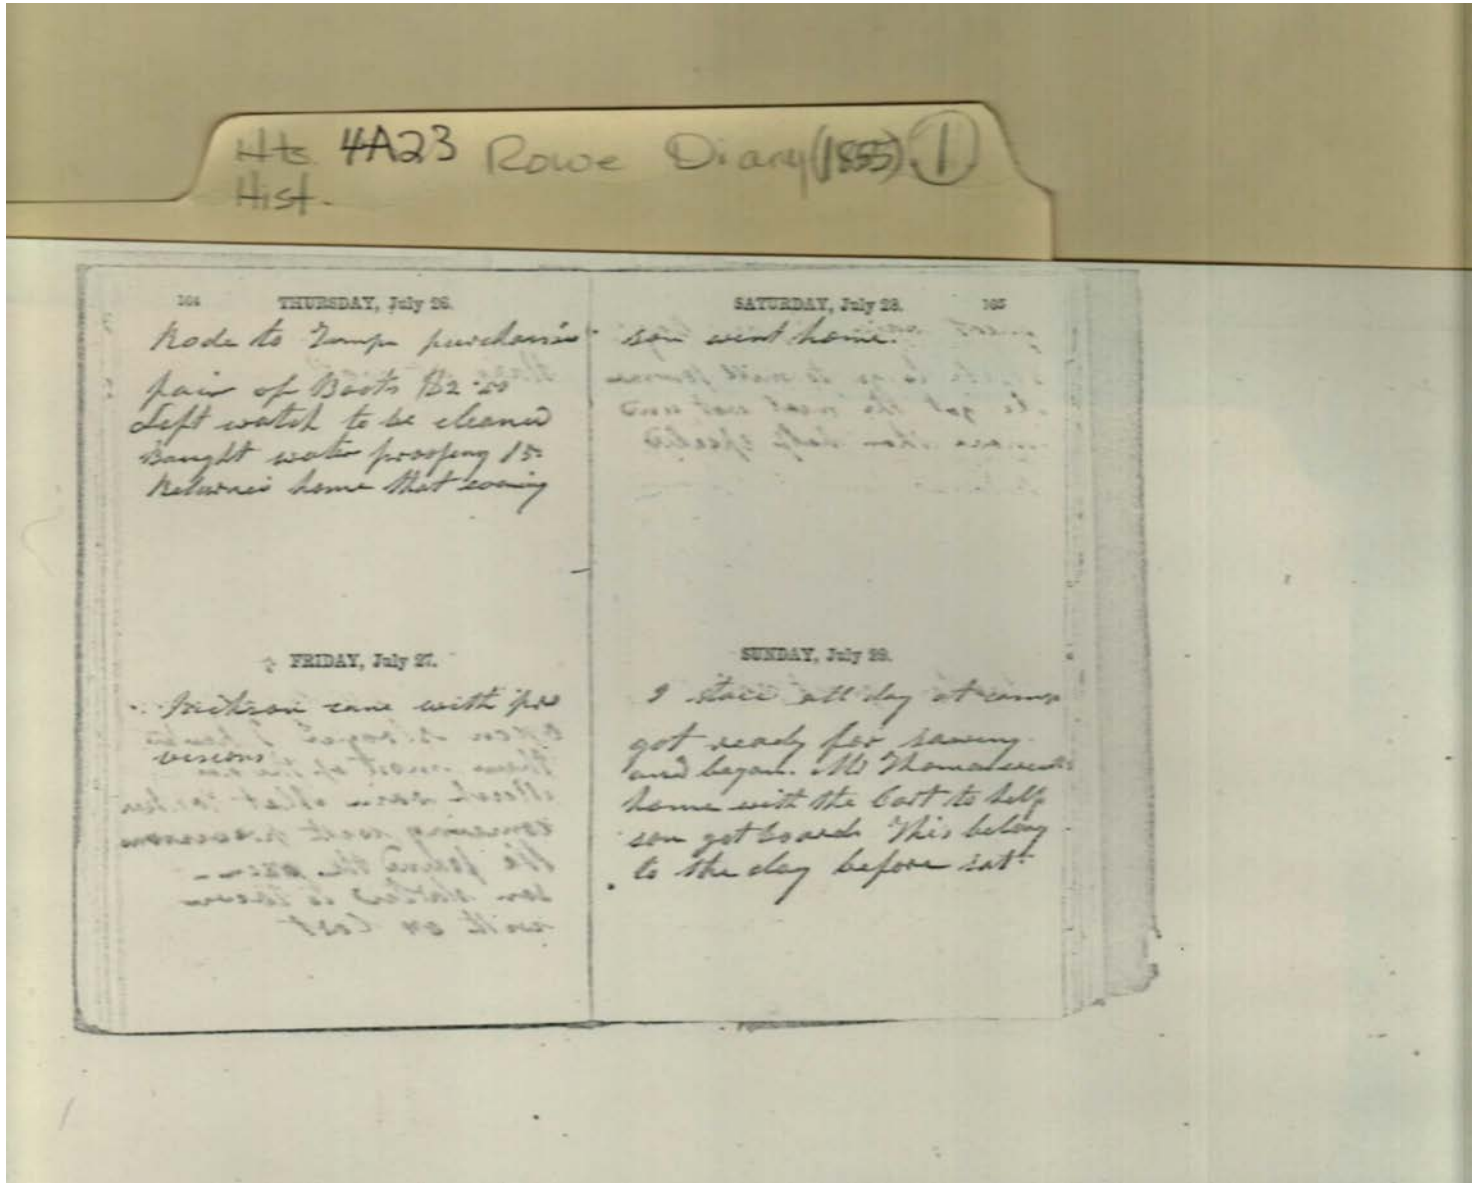 Hts. 4A23 Rowe Diary (1855) 1
Hist.
164 THURSDAY, July 26.
Rode to Tampa purchased
pair of Boots $2.50
Left watch to be cleaned
Bought water proofing 15
Returned home that evening
FRIDAY, July 27.
came with pro
visions
SATURDAY, July 28. 165
son went home.
SUNDAY, July 29.
I staid all day at camp
got ready for sawing
and began. Mr Thomas went
home with the Cart to help
son get board This belong
to the day before sat